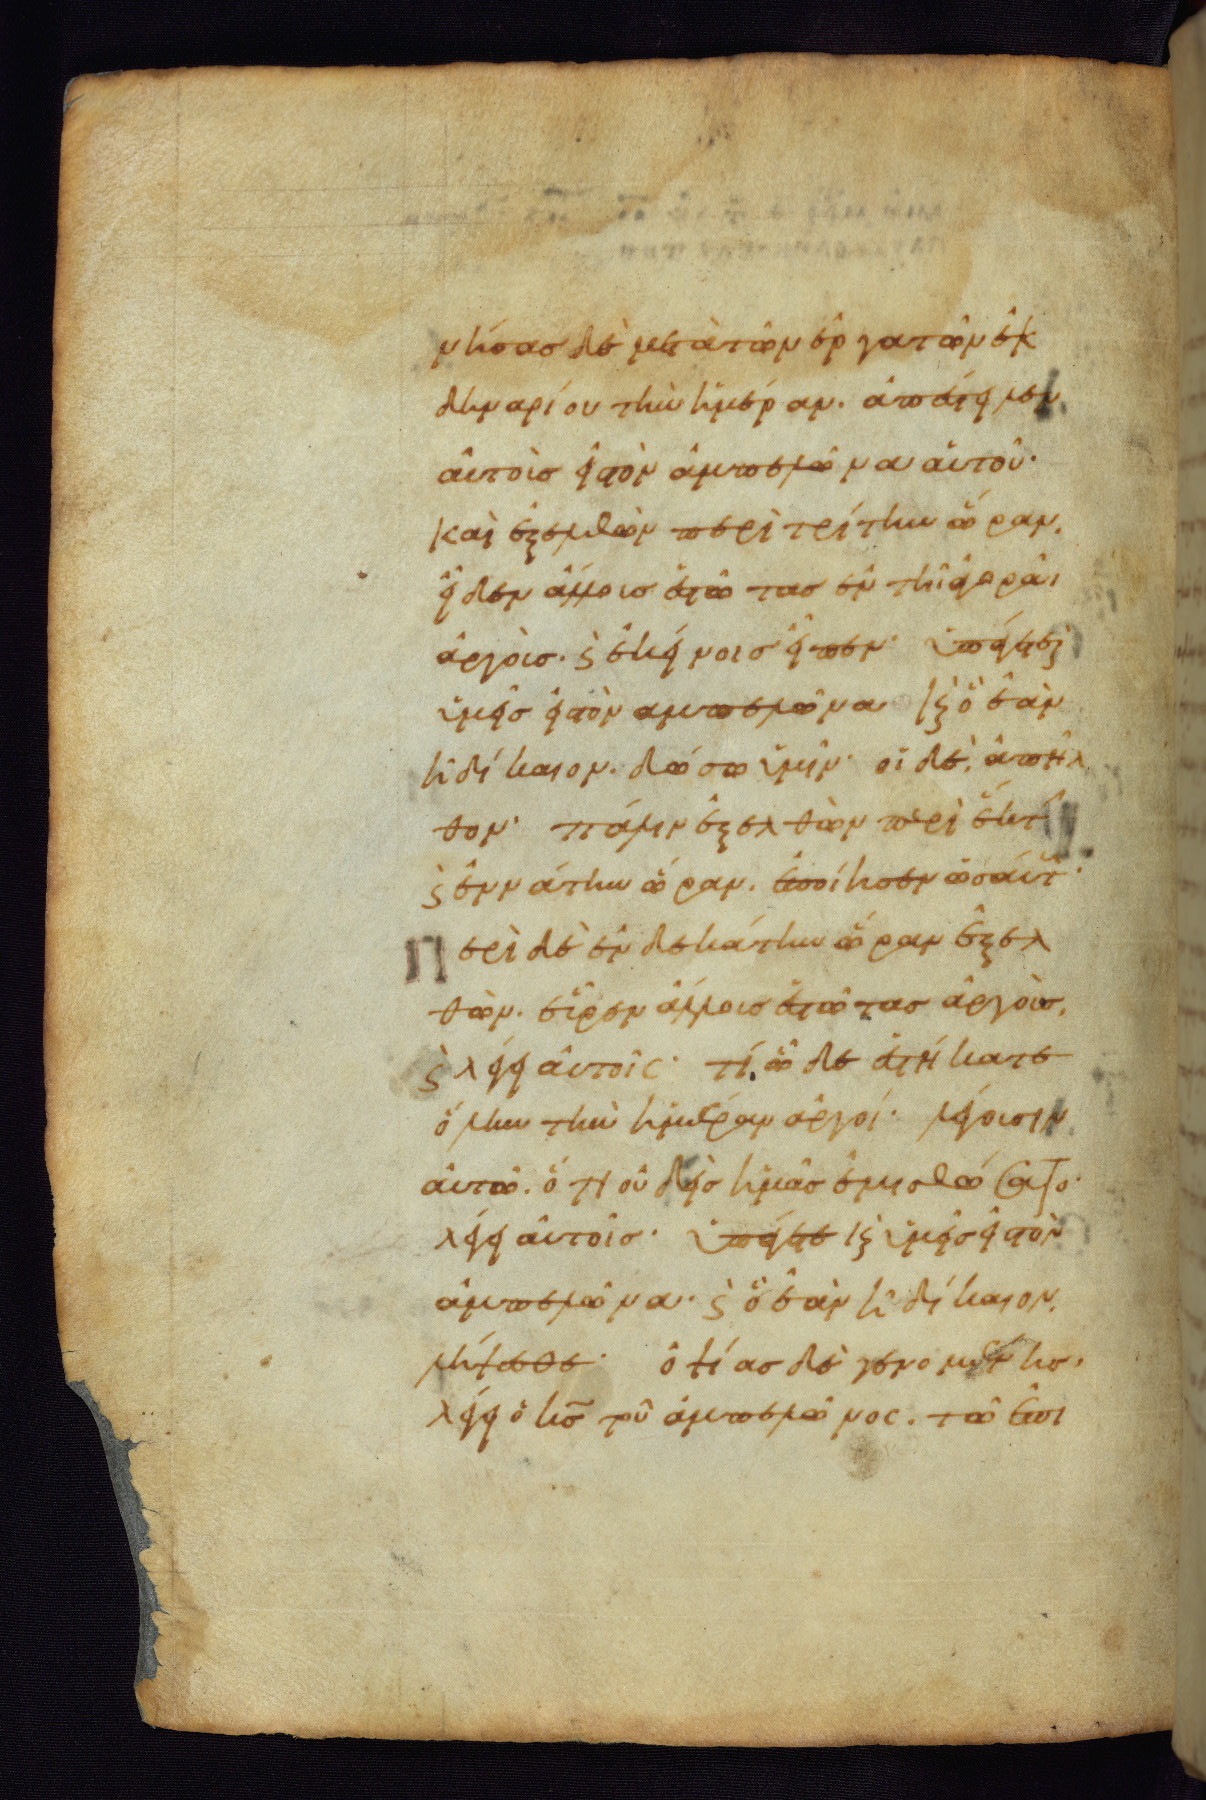 νήσας δὲ μετὰ τῶν ἐργατῶν ἐκ
δηναρίου τὴν ἡμέραν. ἀπέστειλεν
αὐτοὺς εἰς τὸν ἀμπελῶνα αὐτοῦ·
Καὶ ἐξελθὼν περὶ τρίτην ὥραν.
εἶδεν ἄλλους ἑστῶτας ἐν τῇ ἀγορᾶι
ἀργούς. ϗ ἐκείνοις εἶπεν· ὑπάγετε ϗ
ὑμεῖς εἰς τὸν ἀμπελῶνα ϗ ὃ ἐὰν
ἦ δίκαιον. δώσω ὑμῖν· οἱ δὲ, ἀπῆλ
θον· πάλιν ἐξελθὼν περὶ ἕκτ
ϗ ἐννάτην ὥραν. ἐποίησεν ὡσαύτ·
Περὶ δὲ ἑνδεκάτην ὥραν ἐξελ
θὼν. εὗρεν ἄλλους ἑστῶτας ἀργούς.
ϗ λέγει αὐτοῖς· τί ὧδε ἑστήκατε
ὅλην τὴν ἡμέραν ἀργοί· λέγουσιν
αὐτῶ. ὅτι οὐδεὶς ἡμᾶς ἐμισθώσατο·
λέγει αὐτοῖς· ὑπάγετε ϗ ὑμεῖς εἰς τὸν
ἀμπελῶνα. ϗ ὃ ἐὰν ἦ δίκαιον.
λήψεσθε· ὀψίας δὲ γενομένης,
λέγει ὁ κς τοῦ ἀμπελῶνος. τῶ ἐπι